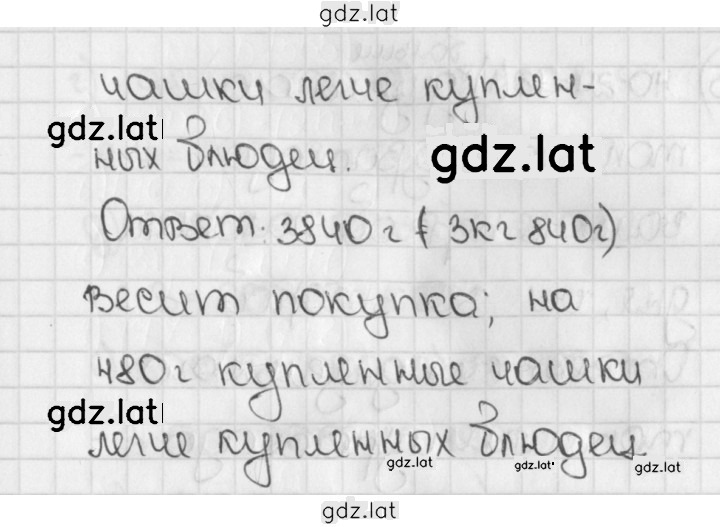 gdz.lat
чашки легче куплен-
gdz.lat
ных блюдец.
gdz.lat
Ответ: 3840 г (3кг 840г)
весит покупка; на
480 г купленные чашки
gdz.lat
легче купленных блюдец
gdz.lat
gdz.lat
gdz.lat
gdz.lat